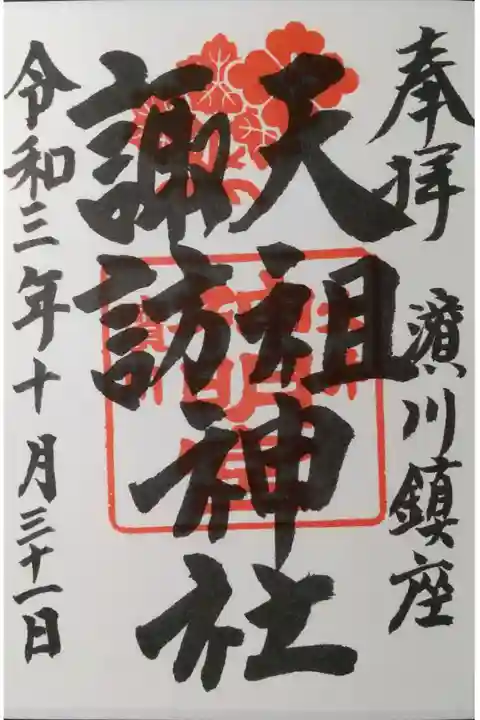 奉拝 濵川鎮座
天祖
諏訪
神社
令和三年十月三十一日